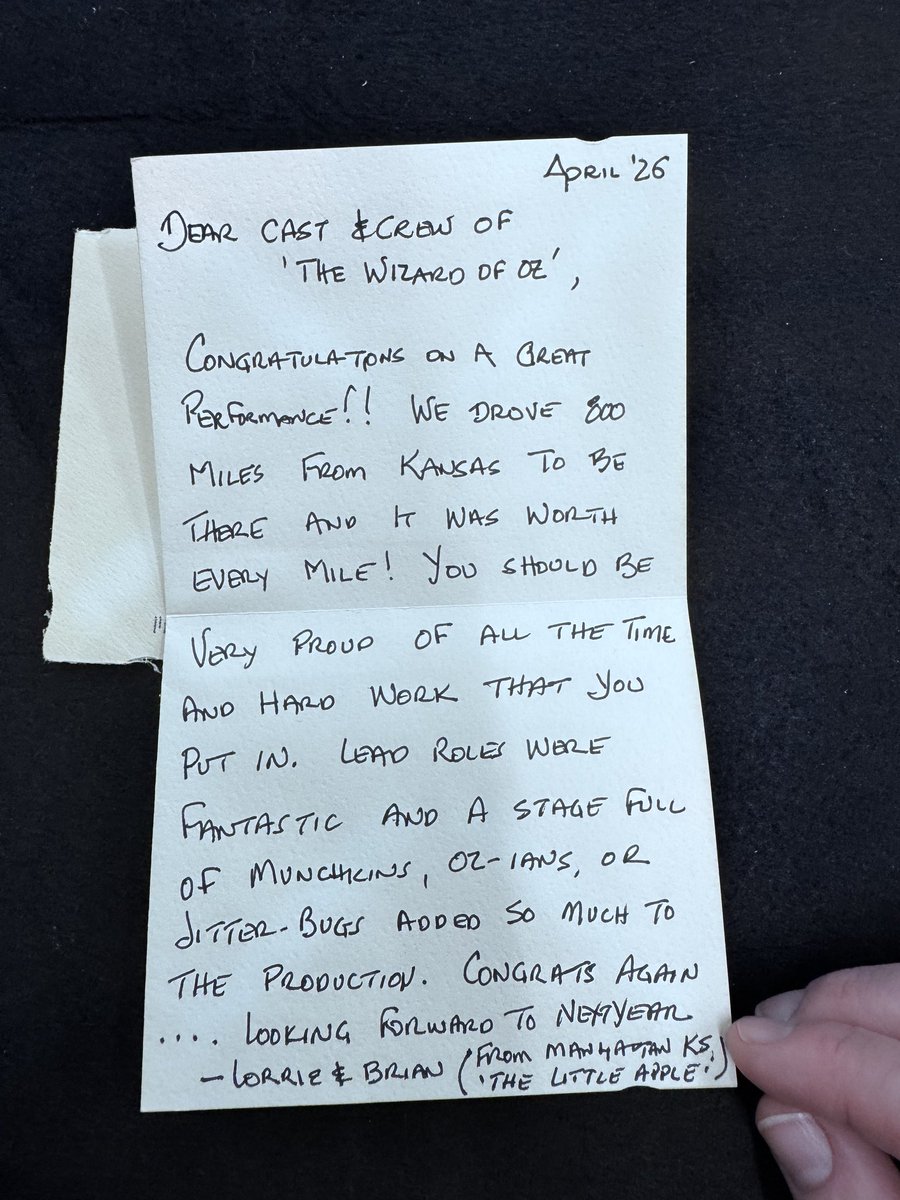 APRIL '26
DEAR CAST & CREW OF
'THE WIZARD OF OZ',
CONGRATULATIONS ON A GREAT
PERFORMANCE!! WE DROVE 800
MILES FROM KANSAS TO BE
THERE AND IT WAS WORTH
EVERY MILE! YOU SHOULD BE
VERY PROUD OF ALL THE TIME
AND HARD WORK THAT YOU
PUT IN. LEAD ROLES WERE
FANTASTIC AND A STAGE FULL
OF MUNCHKINS, OZ-IANS, OR
JITTER-BUGS ADDED SO MUCH TO
THE PRODUCTION. CONGRATS AGAIN
.... LOOKING FORWARD TO NEXT YEAR
- LORRIE & BRIAN (FROM MANHATTAN KS,
'THE LITTLE APPLE!')